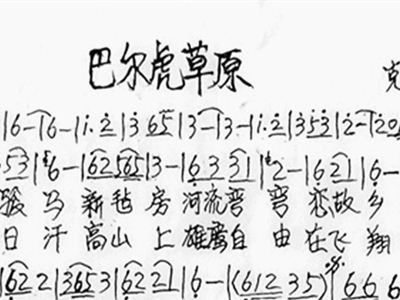 巴尔虎草原
克
|6-|6-|1·2|3 65|3-|3-|1·2|353|2-|120
53|6-|62 565|3-|6 3 31|2-|6 21|6-
骏 马 新 毡 房 河 流 弯 弯 恋 故 乡
日 汗 高 山 上 雄 鹰 自 由 在 飞 翔
|622|365 3|6221|6-|(612 35|666